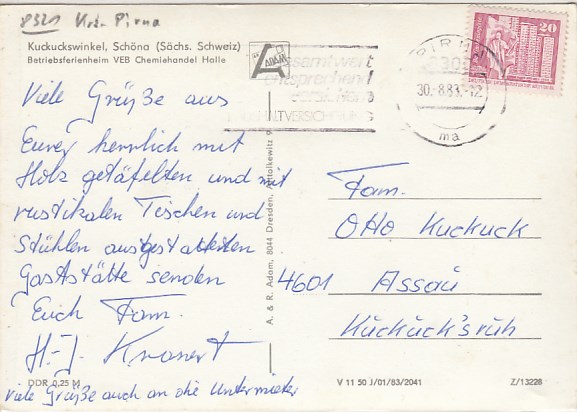 8321 Krs. Pirna
Kuckuckswinkel, Schöna (Sächs. Schweiz)
Betriebsferienheim VEB Chemiehandel Halle
ADAM
PIRNA
30.-8.83.-12
ma
20
Viele Grüße aus
Eurer herrlich mit
Holz getäfelten und mit
rustikalen Tischen und
Stühlen ausgestatteten
Gaststätte senden
Euch Fam.
H.-J. Kronert
viele Grüße auch an die Untermieter
A. & R. Adam, 8044 Dresden,
Fam.
Otto Kuckuck
4601 Assau
Kuckuck'sruh
DDR 0,25 M
V 11 50 J/01/83/2041
Z/13228